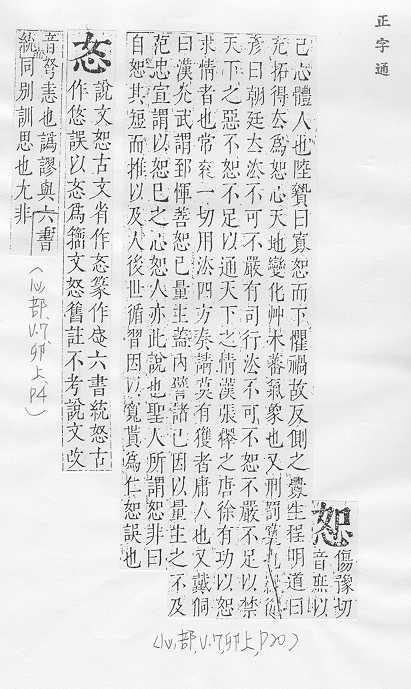 正字通
恕
傷豫切
音庶以
己心體人也陸贄曰寡恕而下懼禍故反側之釁生程明道曰
充拓得去為恕心天地變化艸木蕃氣象也又刑罰
彥曰朝廷大法不可不嚴有司行法不可不恕不嚴不足以禁
天下之惡不恕不足以通天下之情漢張釋之唐徐有功以恕
求情者也常袞一切用法四方奏請莫有獲者庸人也又戴侗
曰漢光武謂郅惲善恕己量主蓋內諸己因以量主之不及
范忠宣謂以恕己之心恕人亦此說也聖人所謂恕非曰
自恕其短而推以及人後世循習因以寬貰為仁恕誤也
(心,部 V.7,卯上,P20)
說文恕古文省作篆作六書統怒古
作誤以為籀文怒舊註不考說文改
音弩恚也譌謬與六書
統同別訓思也尤非
(心,部 V.7,卯上,P4)